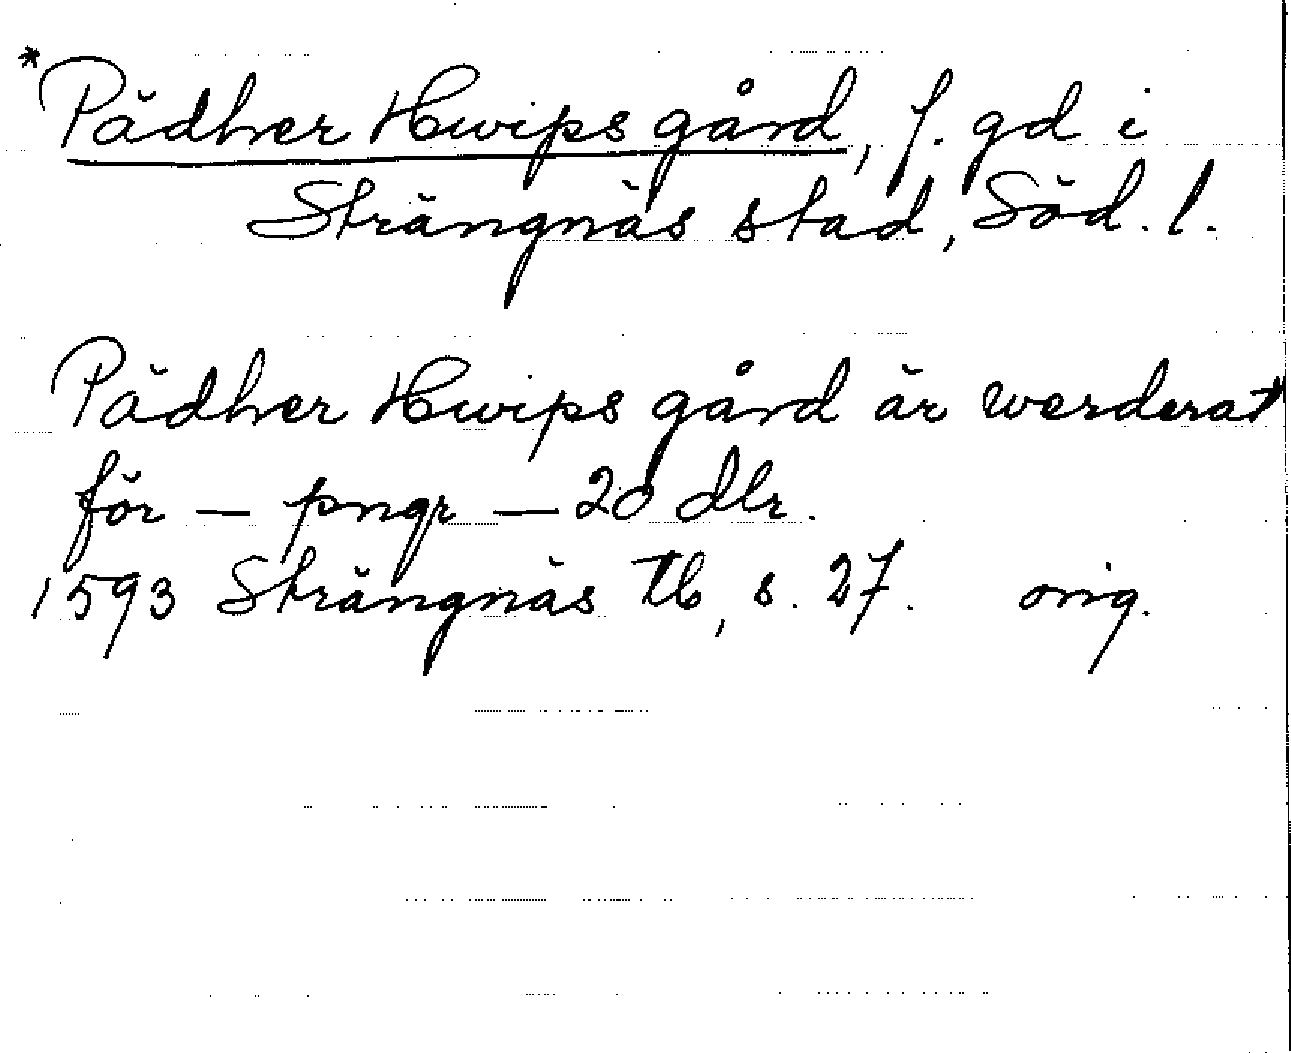 *Pädher Hwips gård, f. gd i
Strängnäs stad, Söd. l.
Pädher Hwips gård är werderat
för — pngr — 20 dlr.
1593 Strängnäs tb, s. 27. orig.